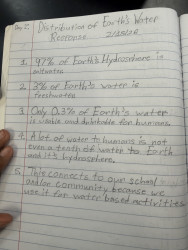 Distribution of Earth's Water
Resource
1. 97% of Earth's Hydrosphere is
saltwater
2. 3% of Earth's water is
freshwater
3. Only 0.3% of Earth's water
is usable and drinkable for humans
4. A lot of water to humans is not
even a tenth of water to Earth
and it's hydrosphere.
5. This connects to our school
and/or community because we
use it for water based activities